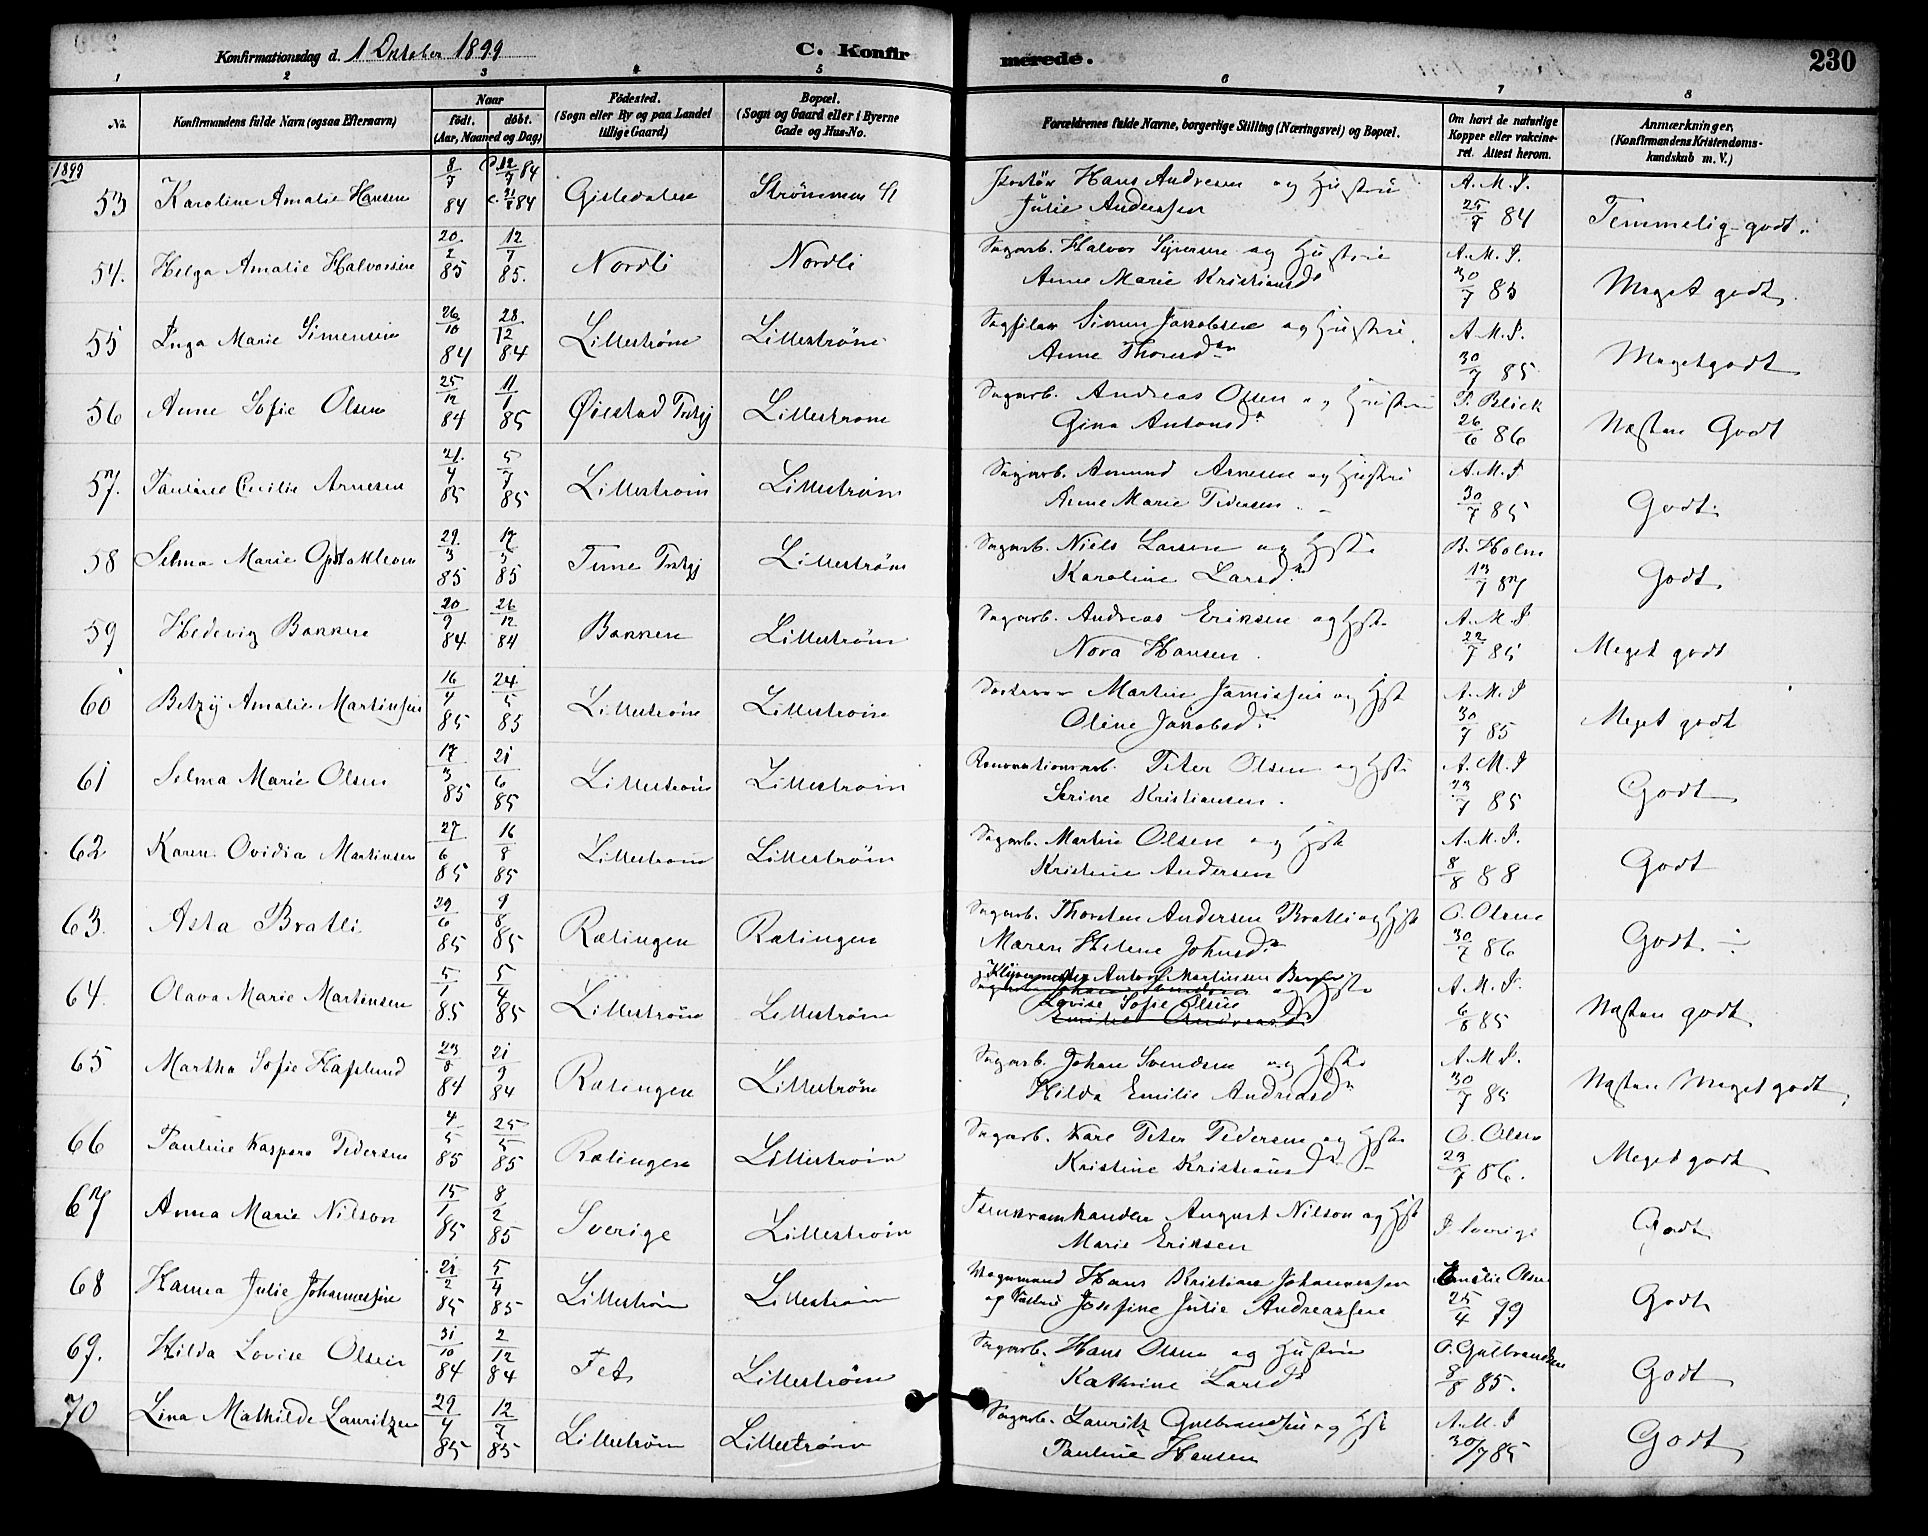 Konfirmationsdag d. 1 Oktober 1899
C. Konfirmerede.
230
1 2 3 4 5 6 7 8
No. Konfirmandens fulde Navn (ogsaa Efternavn) Naar født. døbt. (Aar, Maaned og Dag) Fødested. (Sogn eller By og paa Landet tillige Gaard) Bopæl. (Sogn og Gaard eller i Byerne Gade og Hus-No. Forældrenes fulde Navne, borgerlige Stilling (Næringsvei) og Bopæl. Om havt de naturlige Kopper eller vakcineret. Attest herom. Anmærkninger. (Konfirmandens Kristendomskundskab m. V.)
1899
53 Karoline Amalie Hansen 8/7 84 12/7 84 84 Strømmen Hans Andresen og Hustru Julie Anderssen A.M.J. 25/7 84 Temmelig godt.
54. Helga Amalie Halvorsen 20/2 85 12/7 85. Nordli Nordli Sagarb. Halvor Syversen og Hustru Anne Marie Kristiansdr A.M.J. 30/7 85 Meget godt.
55 Inga Marie Simensen 26/10 84 28/12 84 Lillestrøm Lillestrøm Sagfiler Simen Jakobsen og Hustru Anne Thoresdtr A.M.J. 30/7 85 Meget godt
56 Anne Sofie Olsen 25/12 84 11/1 85 Øiestad Trktgj Lillestrøm Sagarb. Andreas Olsen og Hustru Gina Antonsdr P. Blick 26/6 86 Næsten Godt
57. Pauline Cecilie Arnesen 21/4 85 5/7 85 Lillestrøm Lillestrøm Sagarb. Amund Arnesen og Hustru Anne Marie Pedersen A.M.J 30/7 85 Godt.
58 Selma Marie 29/3 85 17/5 85 Lillestrøm Sagarb. Niels Larsen og Hstr Karoline Larsdr B. Holm 13/7 87 Godt
59 Hedevig Bakken 20/9 84 26/12 84 Bakken Lillestrøm Sagarb. Andreas Eriksen og Hstr Nora Hansen. A.M.J 22/7 85 Meget godt
60 Betzy Amalie Martinsen 16/4 85 24/5 85 Lillestrøm Lillestrøm Martin og Hst Oline Jakobsd. A.M.J 30/7 85 Meget godt
61 Selma Marie Olsen 17/3 85 21/6 85 Lillestrøm Lillestrøm Renovationsarb. Peter Olsen og Hstr Serine Kristiansen. A.M.J 23/7 85 Godt
62 Karen Ovidia Martinsen 27/6 85 16/8 85 Lillestrøm Lillestrøm Sagarb. Martin Olsen og Hstr Kristine Andersen A.M.J. 8/8 88 Godt
63. Asta Bratli 29/6 85 9/8 85 Rælingen Rælingen Sagarb. Thorsten Andersen Bratli og Hstr Maren Helene Johnsd. O. Olsen 30/7 86 Godt. ÷
64. Olava Marie Martinsen 5/1 85 5/4 85 Lillestrøm Lillestrøm Anton Martinsen og Hstr Lovise Sofie Olsen A.M.J. 6/8 85 Næsten godt
65 Martha Sofie Haslund 23/8 84 21/9 84 Rælingen Lillestrøm Sagarb. Johan Svendsen og Hstr Hilda Emilie Andreasdr A.M.J. 30/7 85 Næsten Meget godt.
66 Pauline Kaspara Pedersen 4/5 85 25/5 85 Rælingen Lillestrøm Sagarb. Karl Peter Pedersen og Hstr Kristine Kristiansd. O. Olsen 23/7 86. Meget godt
67 Anna Marie Nilson 15/1 85 8/2 85 Sverige Lillestrøm Jernkramhandler August Nilson og Hst Marie Eriksen I Sverige Godt
68 Hanna Julie Johannessen 21/2 85 5/4 85 Lillestrøm Lillestrøm Vognmand Hans Kristian Johannessen og Hustru Josefine Julie Andreassen Emelie Olsen 25/4 99 Godt
69. Hilda Lovise Olsen 31/10 84 2/12 84 Fet Lillestrøm Sagarb. Hans Olsen og Hustru Kathrine Larsdr O. Gulbrandsen 8/8 85. Godt
70 Lina Mathilde Lauritzen 29/4 85 12/7 85 Lillestrøm Lillestrøm Sagarb. Lauritz Gulbrandsen og Hst Pauline Hansen A.M.J 30/7 85 Godt